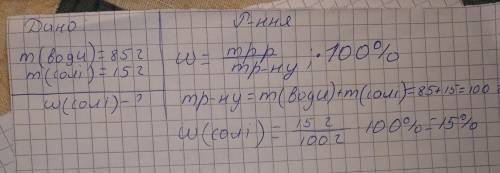 Дано
Р-ння
m(води)=85г
m(солі)=15г
w(солі)-?
w = mрр / mр-ну ; · 100%
mр-ну = m(води)+m(солі)=85+15=100г
w(солі) = 15г / 100г 100%=15%